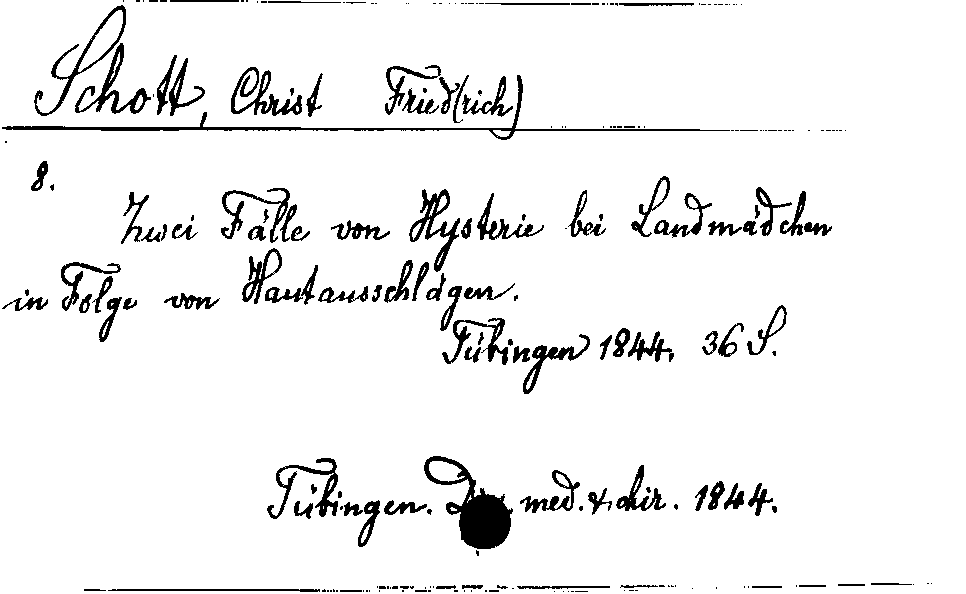 Schott, Christ Fried(rich)
8.
Zwei Fälle von Hysterie bei Landmädchen
in Folge von Hautausschlägen.
Tübingen 1844. 36 S.
Tübingen. med. & chir. 1844.